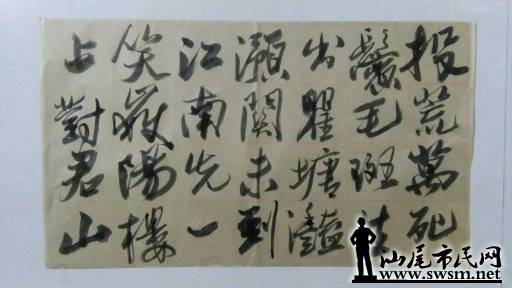 投荒萬死
鬢毛斑生
出瞿塘灩
澦關未到
江南先一
笑嶽陽樓
上對君山
汕尾市民网
www.swsm.net